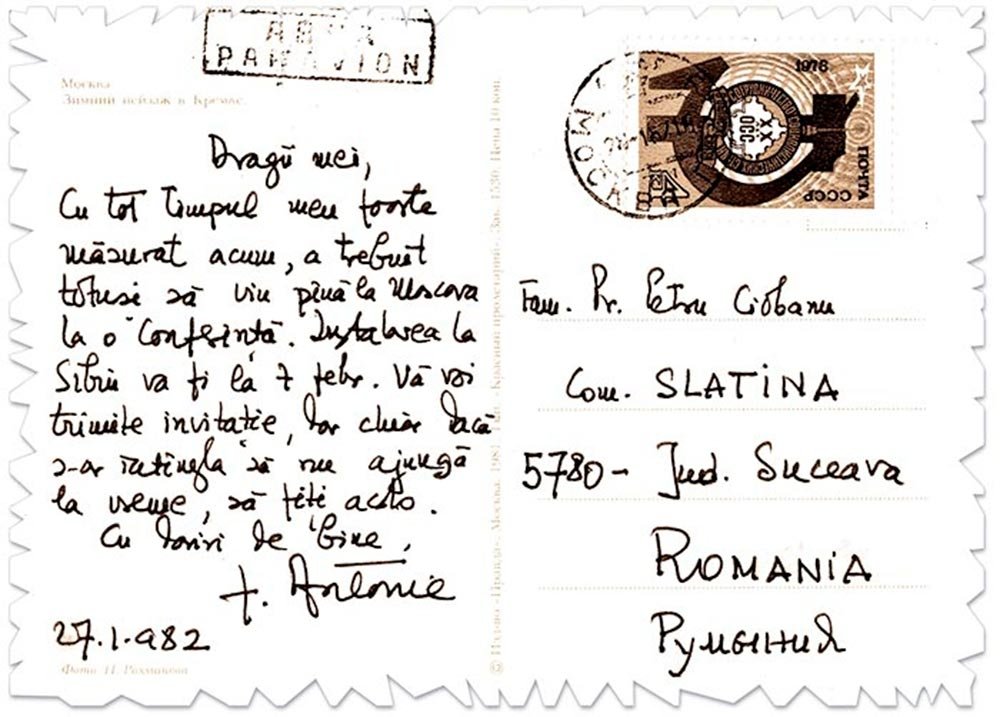 АВИА
PAR AVION
Москва
Зимний пейзаж в Кремле.
Dragii mei,
Cu tot timpul meu foarte
măsurat acum, a trebuit
totusi să viu pînă la Moscova
la o Conferintă. Instalarea la
Sibiu va fi la 7 febr. Vă voi
trimite invitatie, dar chiar dacă
s-ar intîmpla să nu ajungă
la vreme, să fiti acolo.
Cu doriri de bine,
† Antonie
27.I.982
Фото Н. Рахманова
1978
ПОЧТА
СССР
XXX
МОСКВА
Fam. Pr. Petru Ciobanu
Com. SLATINA
5780- Jud. Suceava
ROMANIA
Румыния